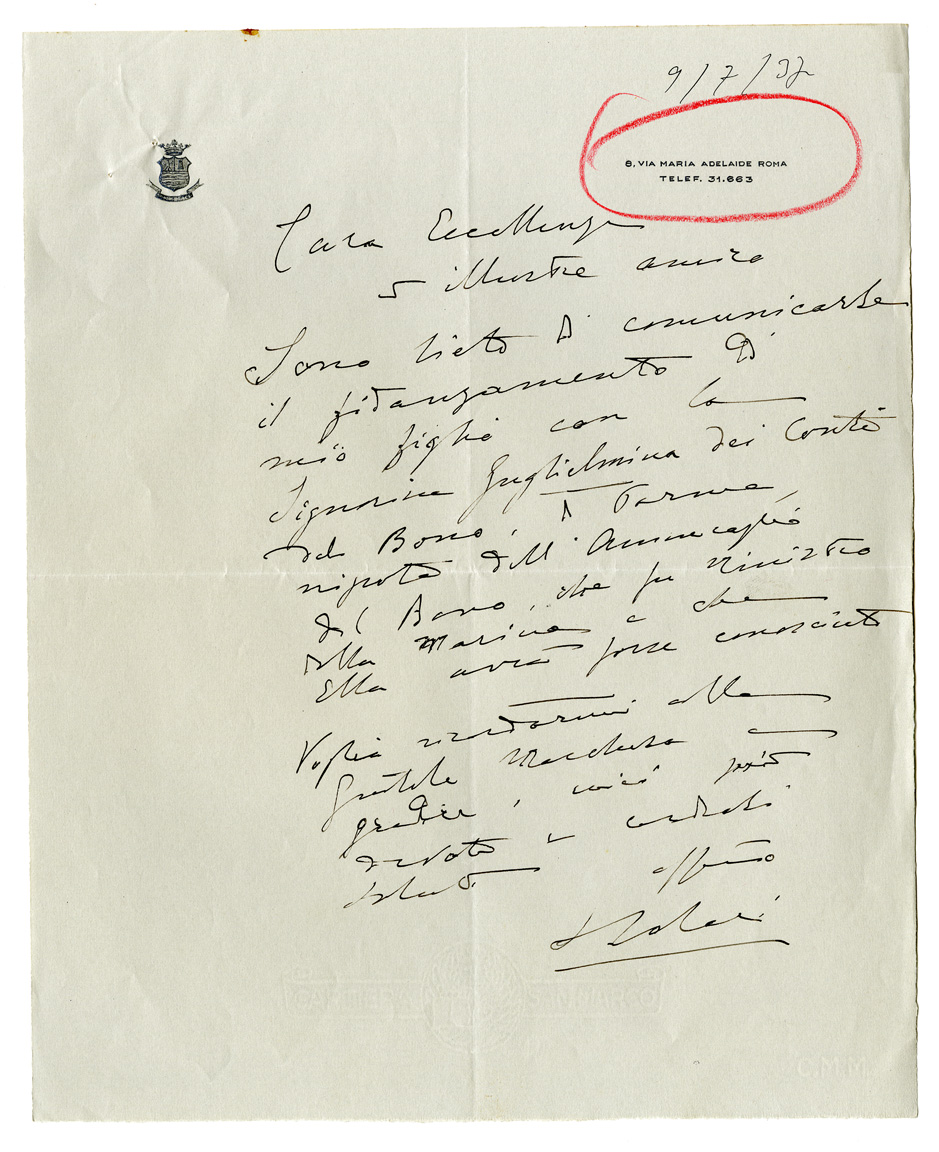 9/7/37
8, VIA MARIA ADELAIDE ROMA
TELEF. 31.663
Cara Eccellenza
e illustre amico
Sono lieto di comunicarle
il fidanzamento di
mio figlio con la
Signorina Guglielmina dei Conti
del Bono, di Parma,
nipote dell'Ammiraglio
del Bono, che fu Ministro
della Marina e che
Ella avrà forse conosciuto
Voglia ricordarmi alla
gentile Marchesa e
gradire, i miei più
devoti e cordiali
saluti
affmo
CARTIERA SAN MARCO
C.M.M.